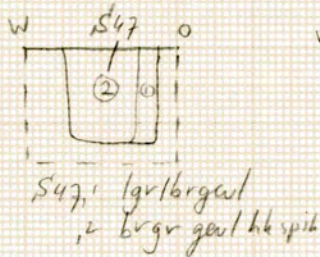 W S47 O
2 1
S47,1 lgr/brgevl
,2 brgr gevl hk spik